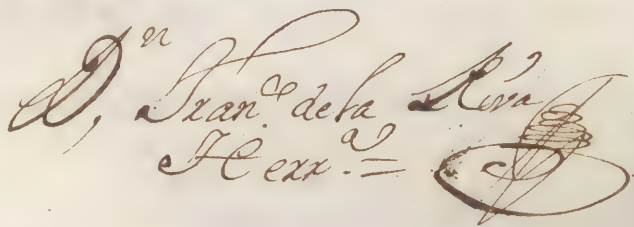 Dn, Franco. de la Riva
Herra. =